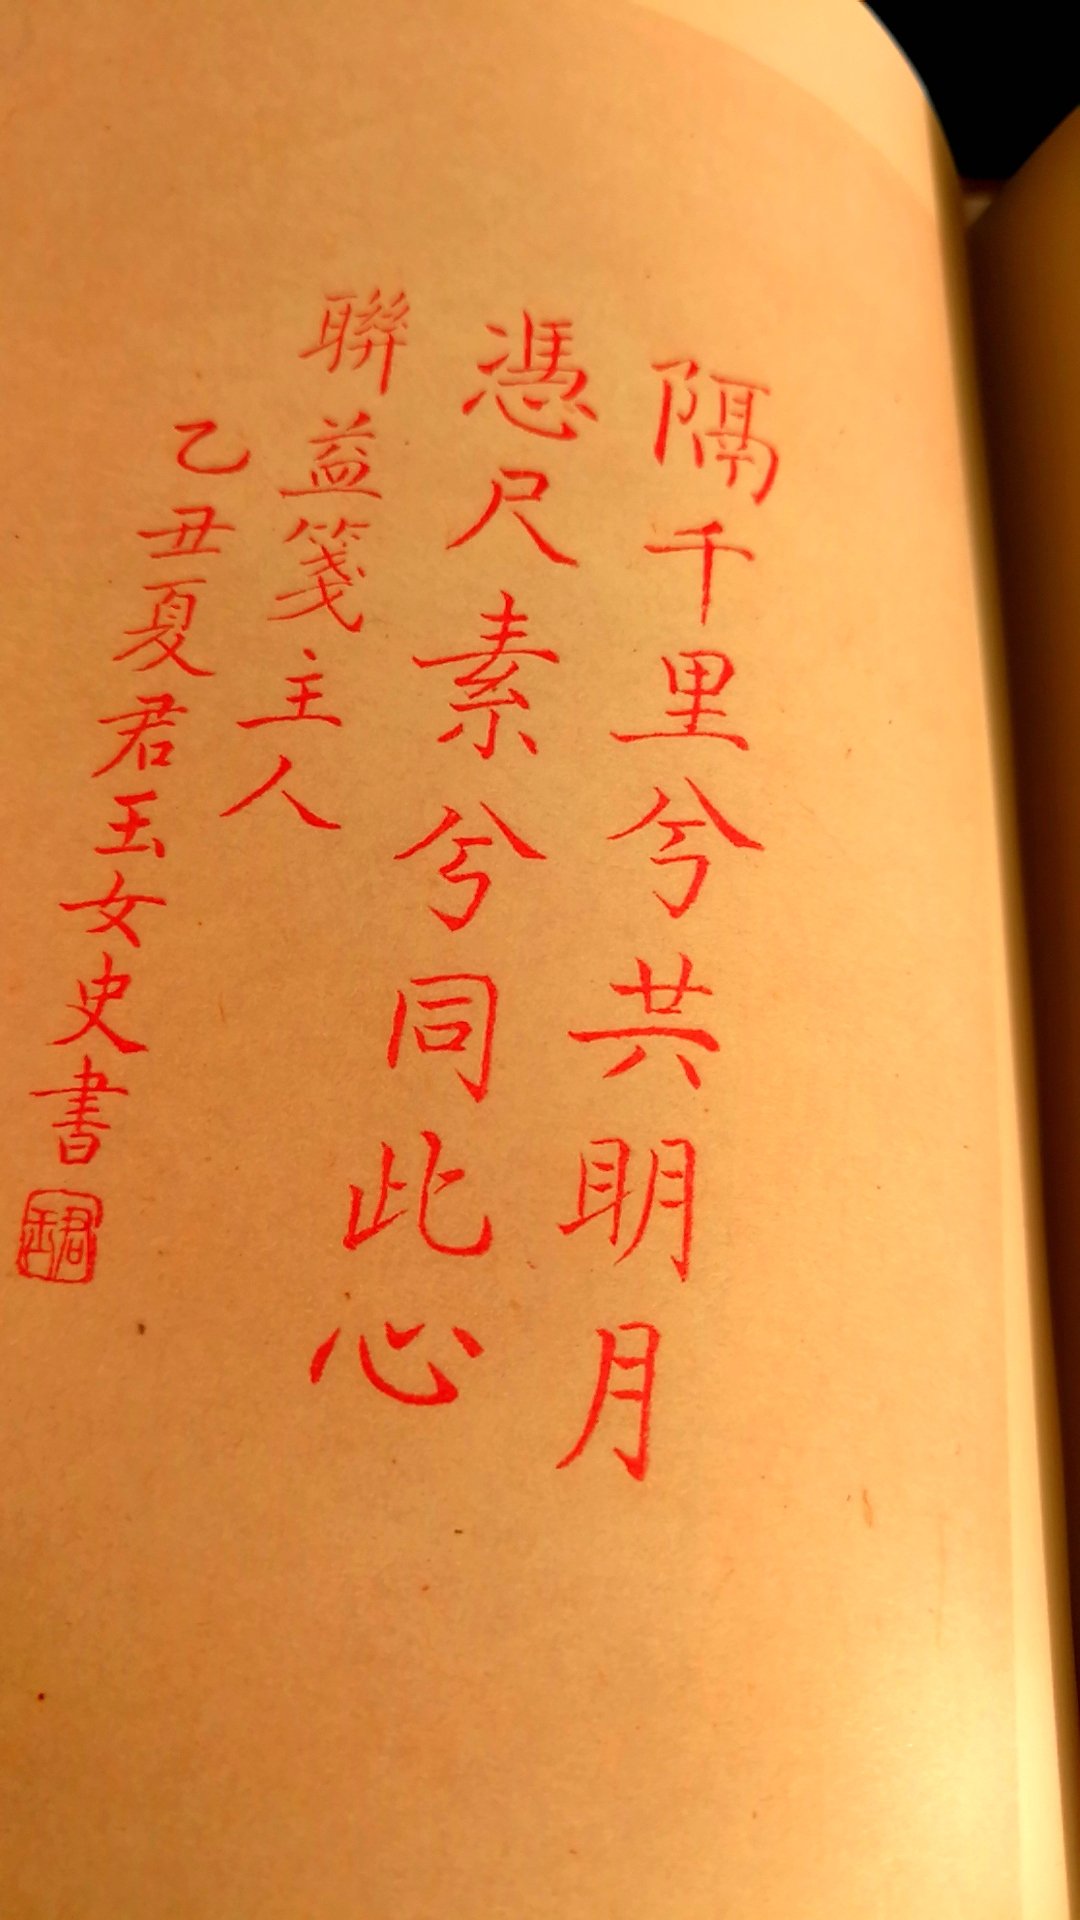 隔千里兮共明月
憑尺素兮同此心
聯益箋主人
乙丑夏君玉女史書
君玉